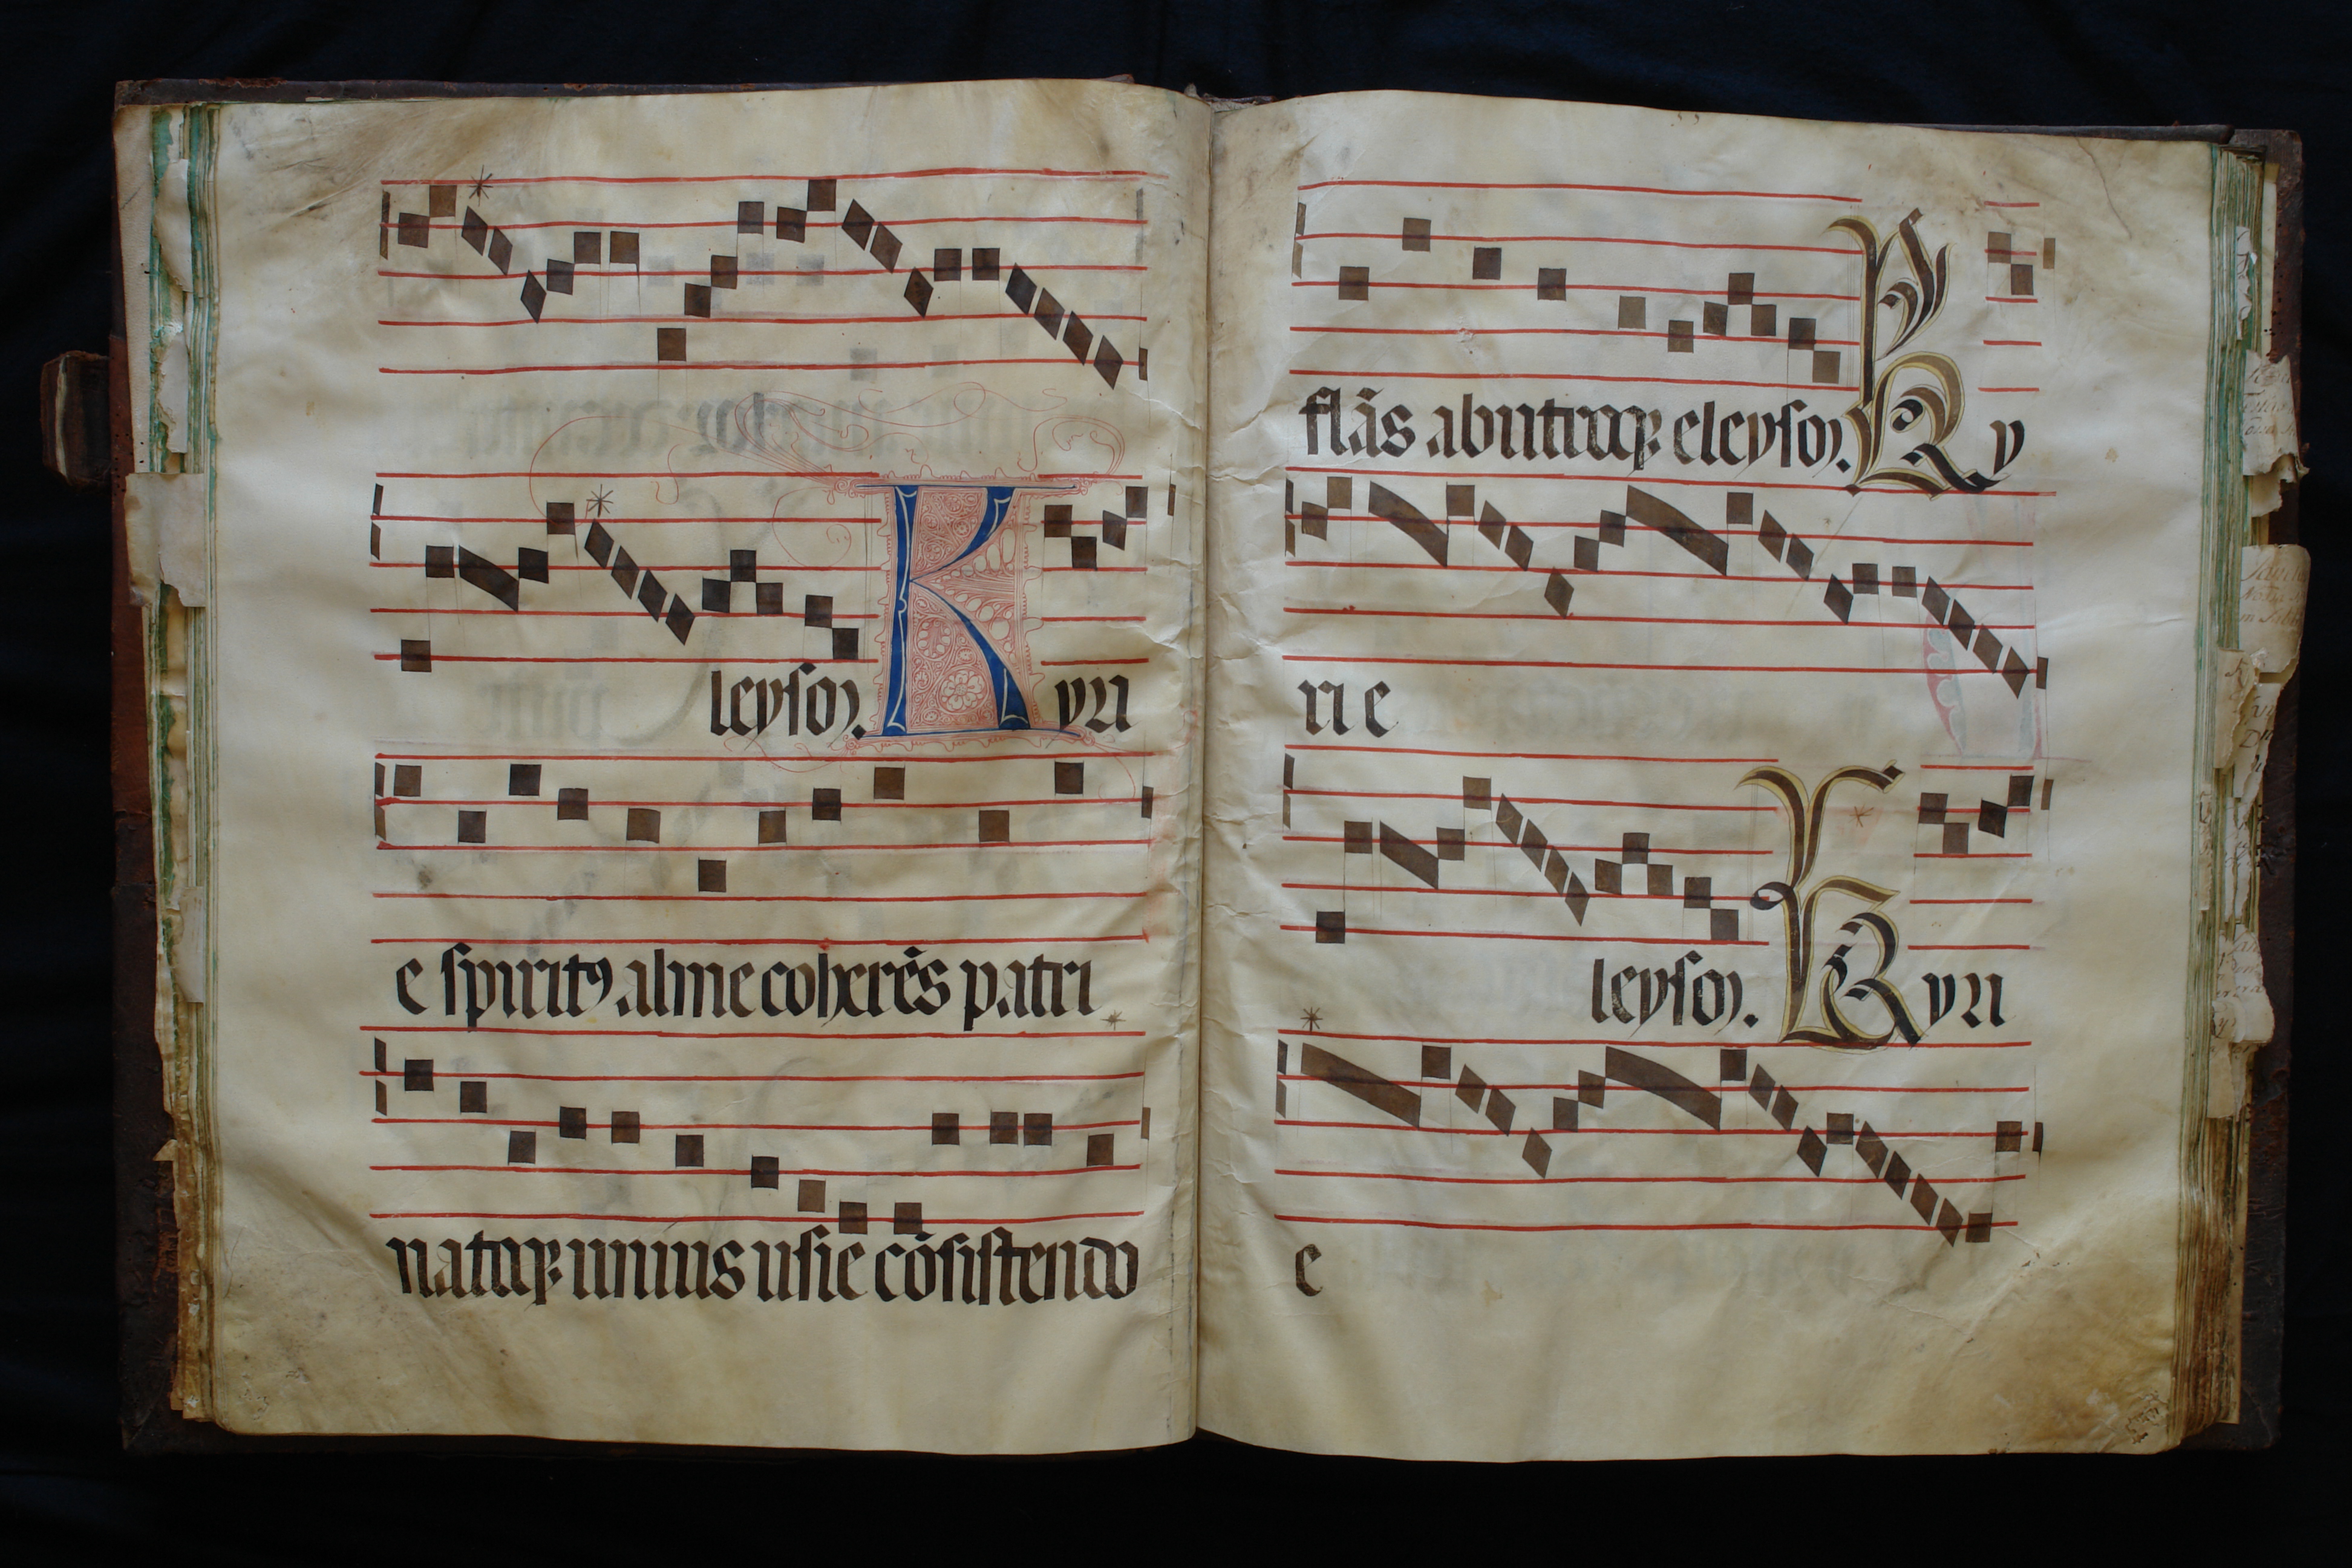 leyson. Kyri
e spiritꝰ alme coherẽs patri
natoqꝫ unius usie cõsistendo
flãs ab utroqꝫ eleyson. Ky
rie
leyson. Kyri
e